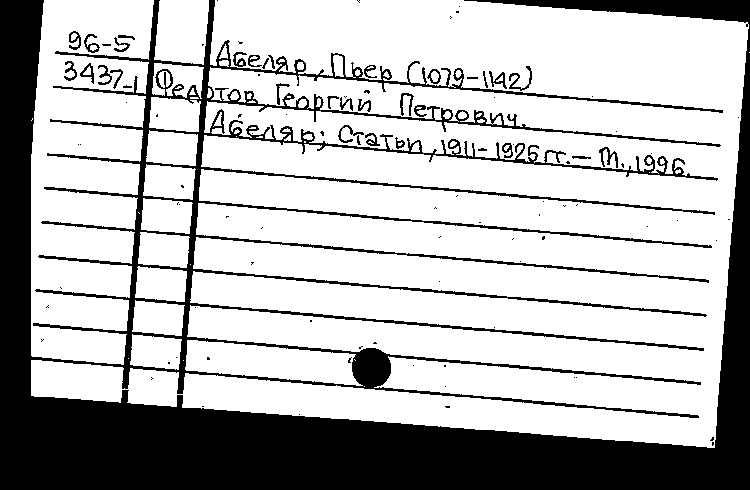 96-5 Абеляр, Пьер (1079-1142)
3437-1 Федотов, Георгий Петрович.
Абеляр; Статьи, 1911-1925 гг. — М., 1996.